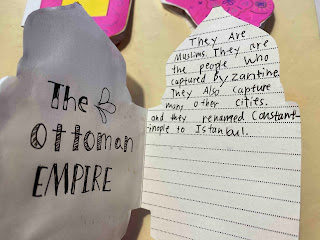 The
Ottoman
EMPIRE
They Are
Muslims. They are
the people who
captured by zantine.
They Also capture
many other cities.
and they renamed Constant-
inople to Istanbul.